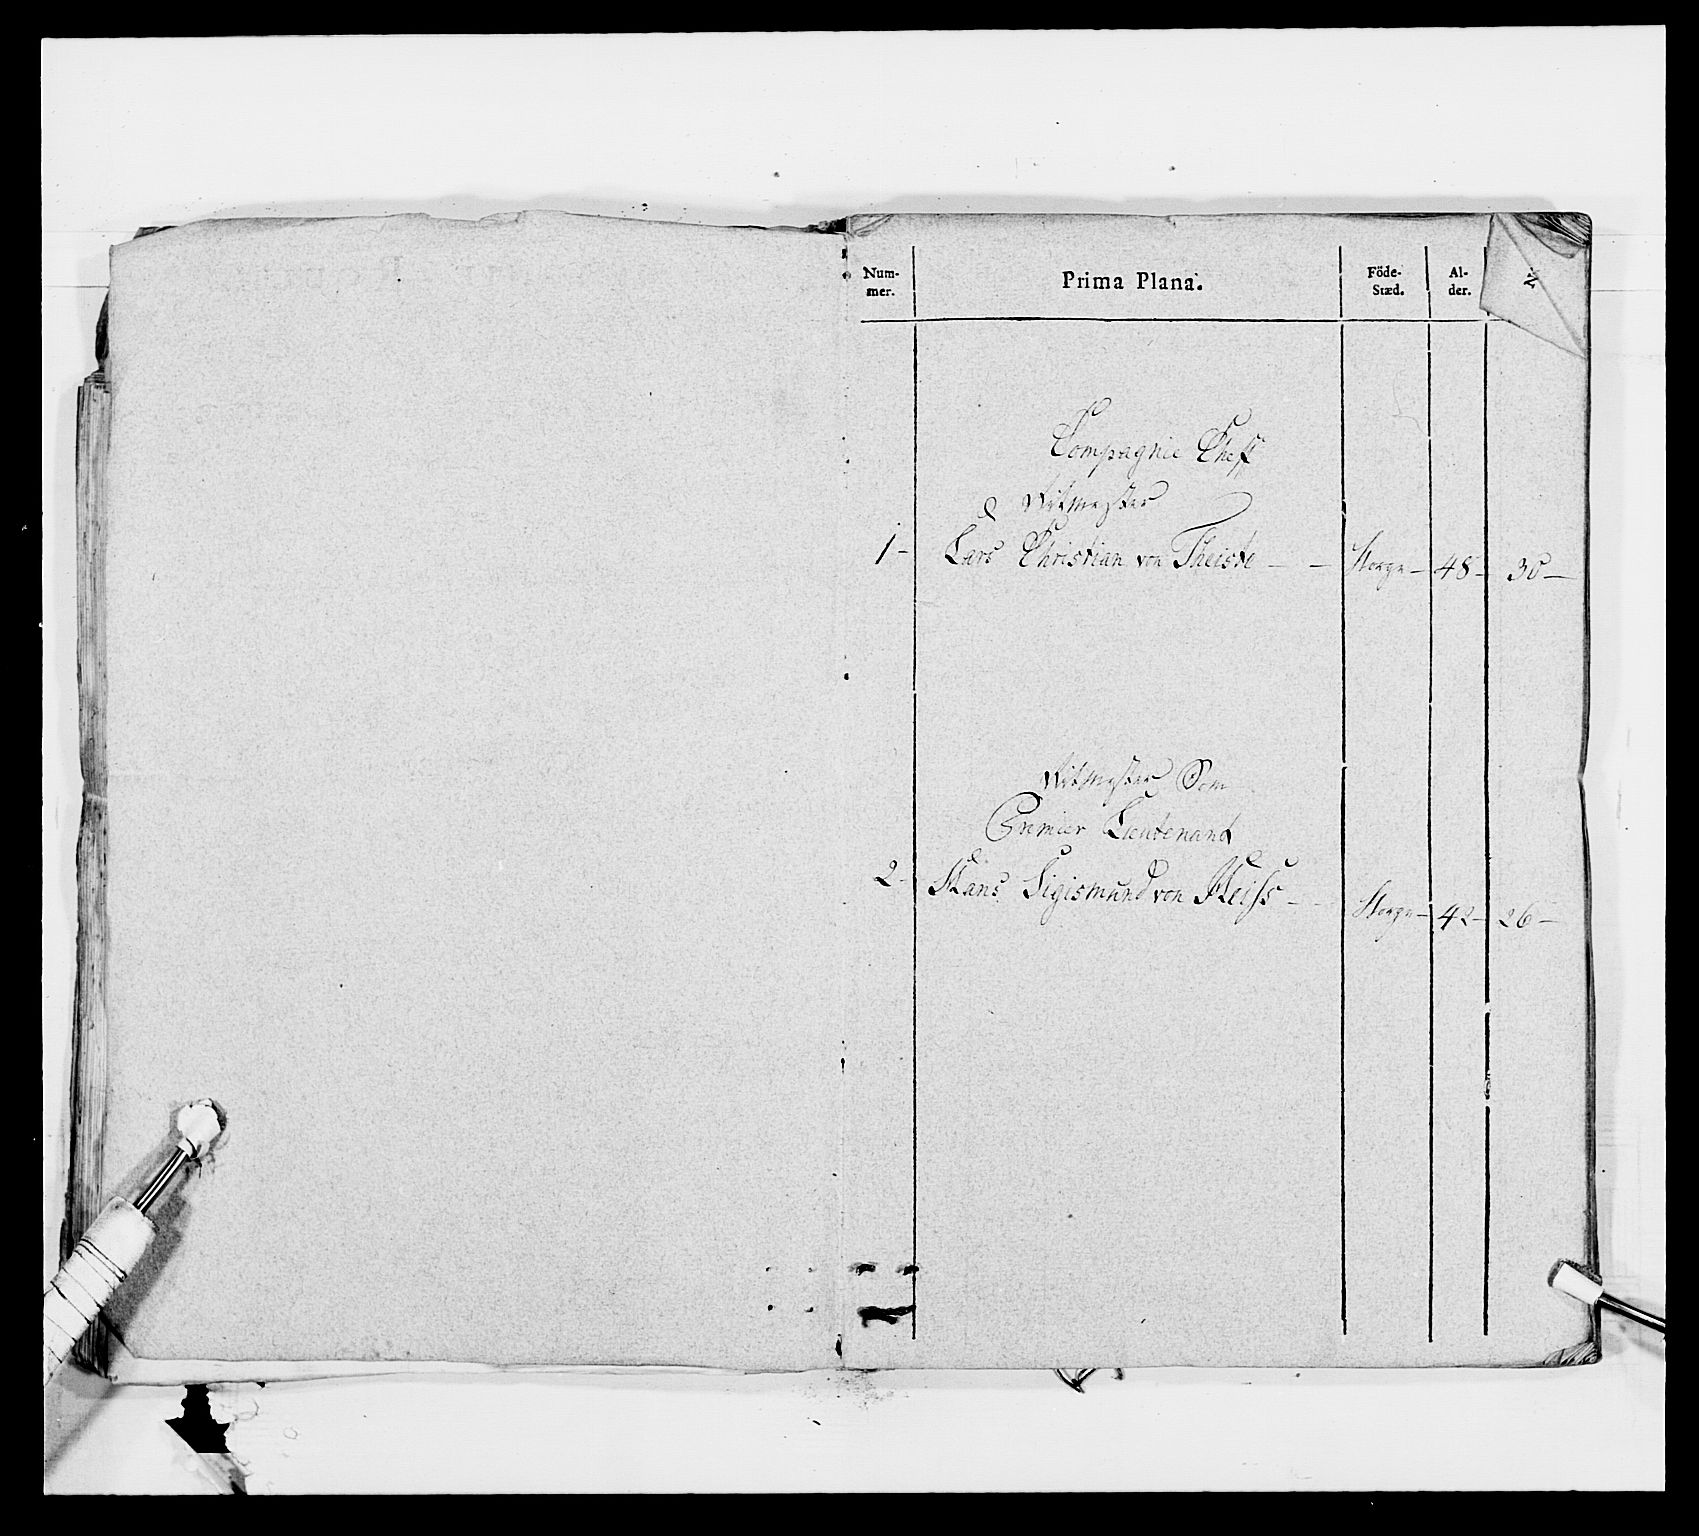 Num-
mer.
Prima Plana.
Föde-
Stæd.
Al-
der.
N
Compagnie Cheff
Ritmester
1- Lars Christian von Theiste - - Norge - 48 - 30 -
Ritmester Som
Premier Lieutenant
2- Hans Sigismund von - - Norge - 42 - 26 -